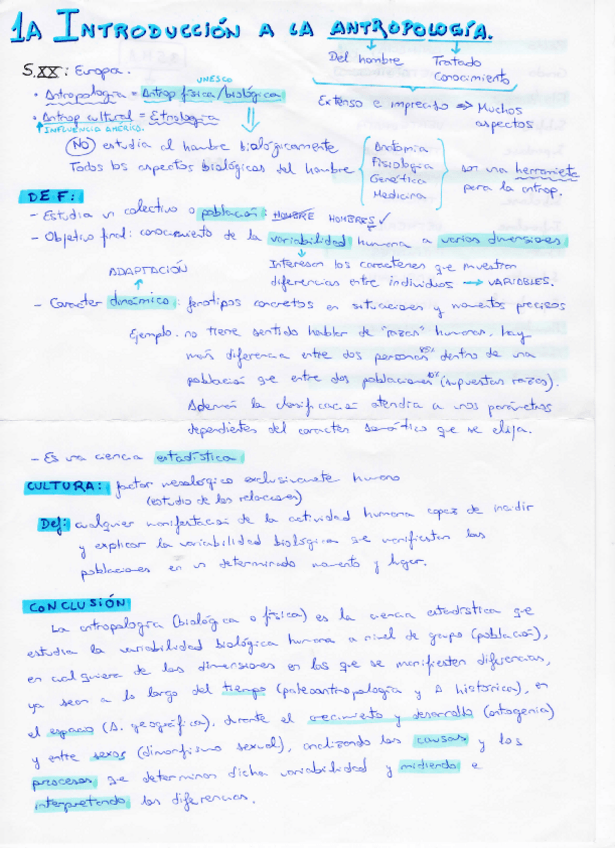 1A INTRODUCCIÓN A LA ANTROPOLOGÍA.
Del hombre Tratado
Conocimiento
S.XX: Europa.
UNESCO
Extenso e impreciso => Muchos
aspectos
· Antropología = Antrop física/biológica
· Antrop cultural = Etnología
INFLUENCIA AMÉRICO.
(NO) estudia al hombre biológicamente
Todos los aspectos biológicos del hombre
Anatomía
Fisiología
Genética
Medicina
son una herramienta
para la antrop.
DEF:
- Estudia un colectivo o población: HOMBRE HOMBRES ✓
- Objetivo final: conocimiento de la variabilidad humana a varias dimensiones
Interesan los caracteres que muestran
diferencias entre individuos → VARIABLES.
ADAPTACIÓN
- Caracter dinámico: fenotipos concretos en situaciones y momentos precisos
Ejemplo. no tiene sentido hablar de "razas" humanas, hay
más diferencia entre dos personas 85% dentro de una
población que entre dos poblaciones (supuestas razas).
Además la clasificación atendía a unos parámetros
dependientes del caracter somático que se elija.
- Es una ciencia estadística
CULTURA: factor mesológico exclusivamente humano
(estudio de las relaciones)
Def: cualquier manifestación de la actividad humana capaz de incidir
y explicar la variabilidad biológica que manifiestan las
poblaciones en un determinado momento y lugar.
CONCLUSIÓN
La antropología (biológica o física) es la ciencia estadística que
estudia la variabilidad biológica humana a nivel de grupo (población),
en cualquiera de las dimensiones en las que se manifiesten diferencias,
ya sean a lo largo del tiempo (paleoantropología y A histórica), en
el espacio (A. geográfica), durante el crecimiento y desarrollo (ontogenia)
y entre sexos (dimorfismo sexual), analizando las causas y los
procesos que determinan dicha variabilidad y midiendo e
interpretando las diferencias.